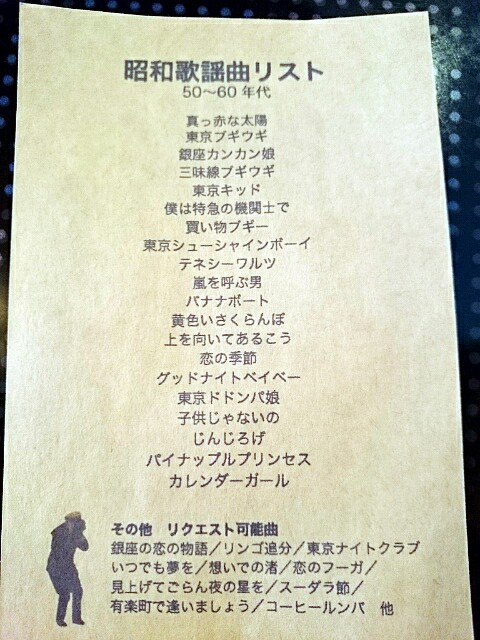 昭和歌謡曲リスト
50〜60年代
真っ赤な太陽
東京ブギウギ
銀座カンカン娘
三味線ブギウギ
東京キッド
僕は特急の機関士で
買い物ブギー
東京シューシャインボーイ
テネシーワルツ
嵐を呼ぶ男
バナナボート
黄色いさくらんぼ
上を向いてあるこう
恋の季節
グッドナイトベイベー
東京ドドンパ娘
子供じゃないの
じんじろげ
パイナップルプリンセス
カレンダーガール
その他 リクエスト可能曲
銀座の恋の物語/リンゴ追分/東京ナイトクラブ
いつでも夢を/想いでの渚/恋のフーガ/
見上げてごらん夜の星を/スーダラ節/
有楽町で逢いましょう/コーヒールンバ 他